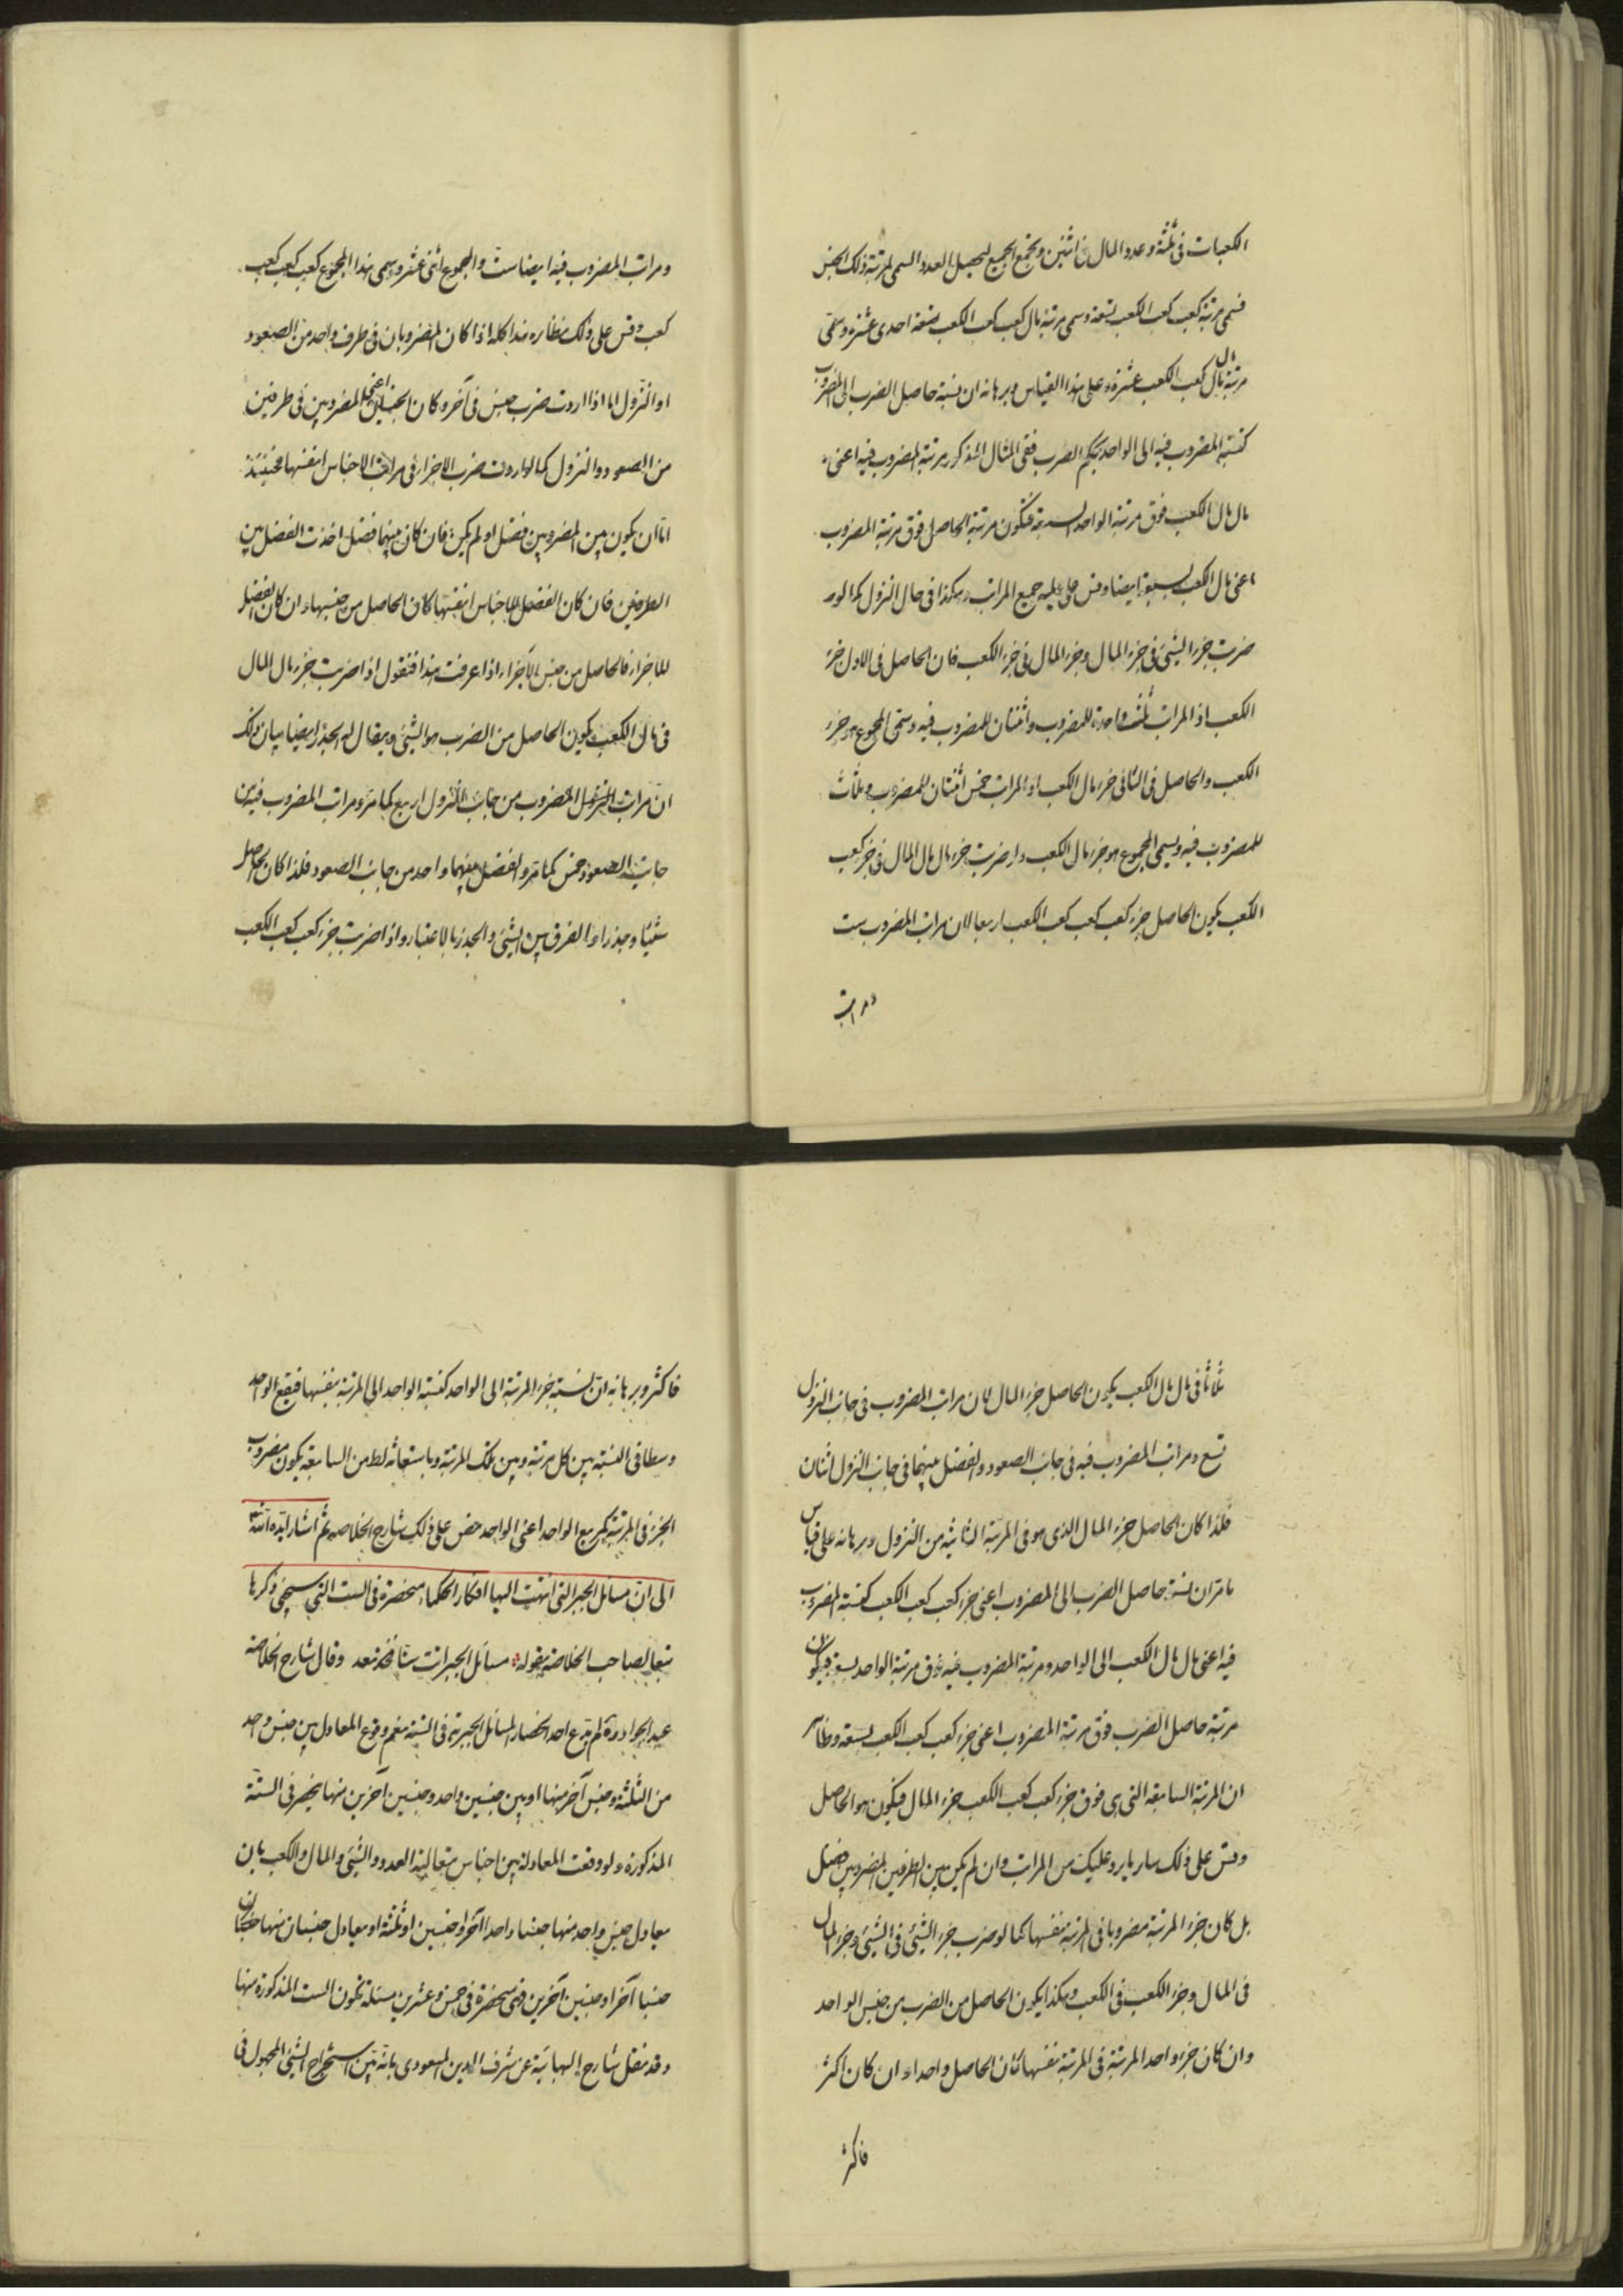 الكعبات فى ثلثة وعدد المال فى اثنين وتجمع الجميع ليحصل العدد السمى لمرتبة ذلك الجنس
فسمى مرتبة كعب كعب الكعب تسعة وسمى مرتبة مال كعب كعب الكعب احدى عشرة وسمى
مرتبة مال مال كعب الكعب عشرة وعلى هذا القياس وبرهانه ان نسبة حاصل الضرب الى المضروب
كنسبة المضروب فيه الى الواحد بحكم الضرب ففى المثال المذكور مرتبة المضروب فيه اعنى
مال مال الكعب فوق مرتبة الواحد بسبعة فتكون مرتبة الحاصل فوق مرتبة المضروب
اعنى مال الكعب بسبعة ايضا وقس عليه جميع المراتب وهكذا فى حال النزول كما لو
ضربت جزء الشئ فى جزء المال وجزء المال فى جزء الكعب فان الحاصل فى الاول جزء
الكعب اذ المراتب ثلث واحدة للمضروب واثنتان للمضروب فيه وسمى المجموع هو جزء
الكعب والحاصل فى الثانى جزء مال الكعب اذ المراتب خمس اثنتان للمضروب وثلاث
للمضروب فيه وسمى المجموع هو جزء مال الكعب واذا ضربت جزء مال مال المال فى جزء كعب
الكعب يكون الحاصل جزء كعب كعب كعب الكعب اربعا لان مراتب المضروب ست
ومراتب
ومراتب المضروب فيه ايضا ست والمجموع اثنى عشر وسمى هذا المجموع كعب كعب كعب
كعب وقس على ذلك نظائره هذا كله اذا كان المضروبان فى طرف واحد من الصعود
او النزول اما اذا اردت ضرب جنس فى آخر وكان الجنسان اعنى المضروبين فى طرفين
من الصعود والنزول كما لو اردت ضرب الاجزاء فى مراتب الاجناس انفسها فحينئذ
اما ان يكون بين المضروبين فضل او لم يكن فان كان بينهما فضل اخذت الفضل بين
الطرفين فان كان الفضل للاجناس انفسها كان الحاصل من جنسها وان كان الفضل
للاجزاء فالحاصل من جنس الاجزاء اذا عرفت هذا فنقول اذا ضربت جزء مال المال
فى مال الكعب يكون الحاصل من الضرب هو الشئ ويقال له الجذر ايضا بيان ذلك
ان مراتب المضروب من جانب النزول اربع كما مر ومراتب المضروب فيه من
جانب الصعود خمس كما مر والفضل بينهما واحد من جانب الصعود فلذا كان الحاصل
شيئا وجذرا والفرق بين الشئ والجذر بالاعتبار واذا ضربت جزء كعب كعب الكعب
ثلاثا فى مال مال الكعب يكون الحاصل جزء المال لان مراتب المضروب فى جانب النزول
تسع ومراتب المضروب فيه فى جانب الصعود والفضل بينهما فى جانب النزول اثنان
فلذا كان الحاصل جزء المال الذى هو فى المرتبة الثانية من النزول وبرهانه على قياس
ما مر ان نسبة حاصل الضرب الى المضروب اعنى جزء كعب كعب الكعب كنسبة المضروب
فيه اعنى مال مال الكعب الى الواحد ومرتبة المضروب فيه فوق مرتبة الواحد بسبعة فيكون
مرتبة حاصل الضرب فوق مرتبة المضروب اعنى جزء كعب كعب الكعب بسبعة وظاهر
ان المرتبة السابعة التى هى فوق جزء كعب كعب الكعب جزء المال فيكون هو الحاصل
وقس على ذلك سائر ما يرد عليك من المراتب وان لم يكن بين الطرفين المضروبين فضل
بل كان جزء المرتبة مضروبا فى المرتبة نفسها كما لو ضرب جزء الشئ فى الشئ وجزء المال
فى المال وجزء الكعب فى الكعب وهكذا يكون الحاصل من الضرب من جنس الواحد
وان كان جزء واحد المرتبة فى المرتبة نفسها كان الحاصل واحدا وان كان اكثر
فاكثر
فاكثر وبرهانه ان نسبة جزء المرتبة الى الواحد كنسبة الواحد الى المرتبة نفسها فيقع الواحد
وسطا فى النسبة بين كل مرتبة وبين تلك المرتبة وباستعانة لط من السابعة يكون مضروب
الجزء فى المرتبة كمربع الواحد اعنى الواحد نص على ذلك شارح الخلاصة ثم اشار ايده الله
الى ان مسائل الجبر التى انتهت اليها افكار الحكماء منحصرة فى الست التى سيجئ ذكرها
تبعا لصاحب الخلاصة بقوله مسائل الجبر اتت ستا فخذ نعد وقال شارح الخلاصة
عبد الجواد لم يدع احد انحصار المسائل الجبرية فى الستة نعم وقوع المعادل بين جنس واحد
من الثلثة وجنس آخر منها او بين جنسين واحد وجنسين آخرين منها ينحصر فى الستة
المذكورة ولو وقعت المعادلة بين اجناس متعالية العدد والشئ والمال والكعب بان
يعادل جنس واحد منها جنسا واحدا آخر او جنسين او ثلثة او يعادل جنسان منها
جنسا آخر او جنسين آخرين فهى منحصرة فى خمس وعشرين مسئلة تكون الست المذكورة منها
وقد نقل شارح البهائية عن شرف الدين المسعودى بانه بين استخراج الشئ المجهول فى